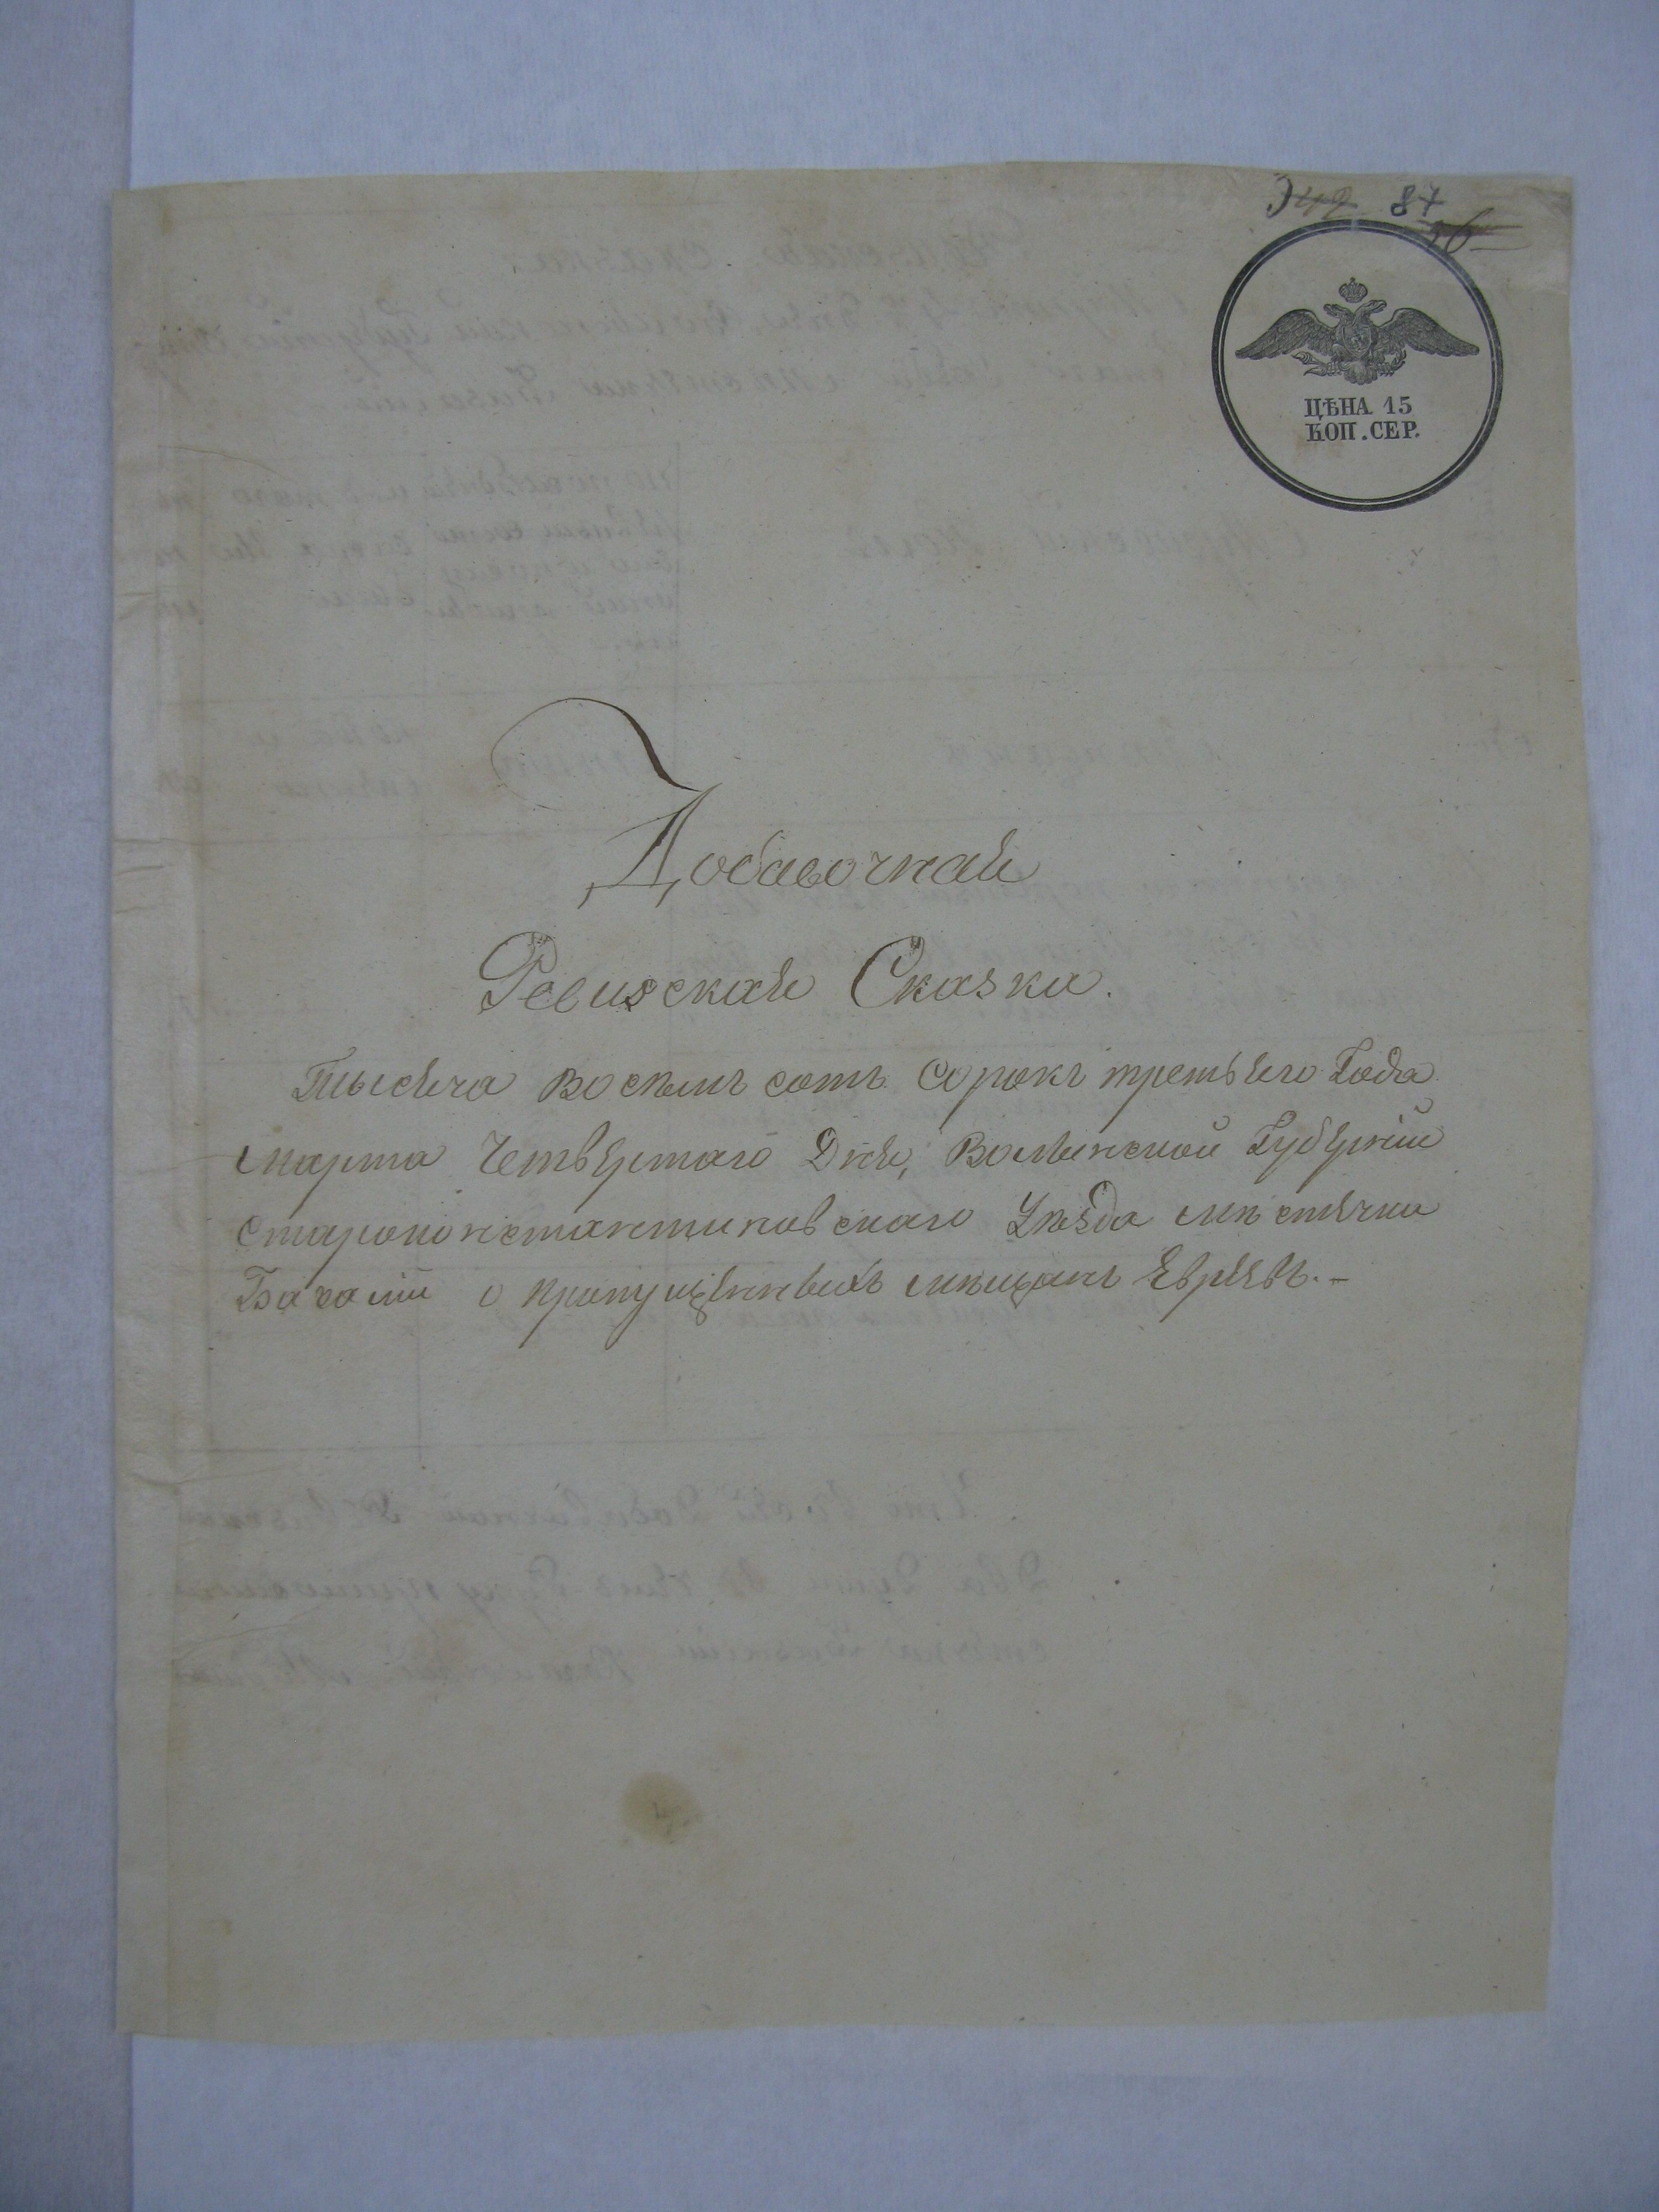 342 87
26
ЦѢНА 15
КОП. СЕР.
Добавочная
Ревизская Сказка.
Тысяча Восемъ сотъ Сорокъ третьяго Года
Марта Четвертаго Дня, Волынской Губерніи
Староконстантиновскаго Уѣзда мѣстечка
Базаліи о пропущенныхъ мѣщанъ Евреевъ.-